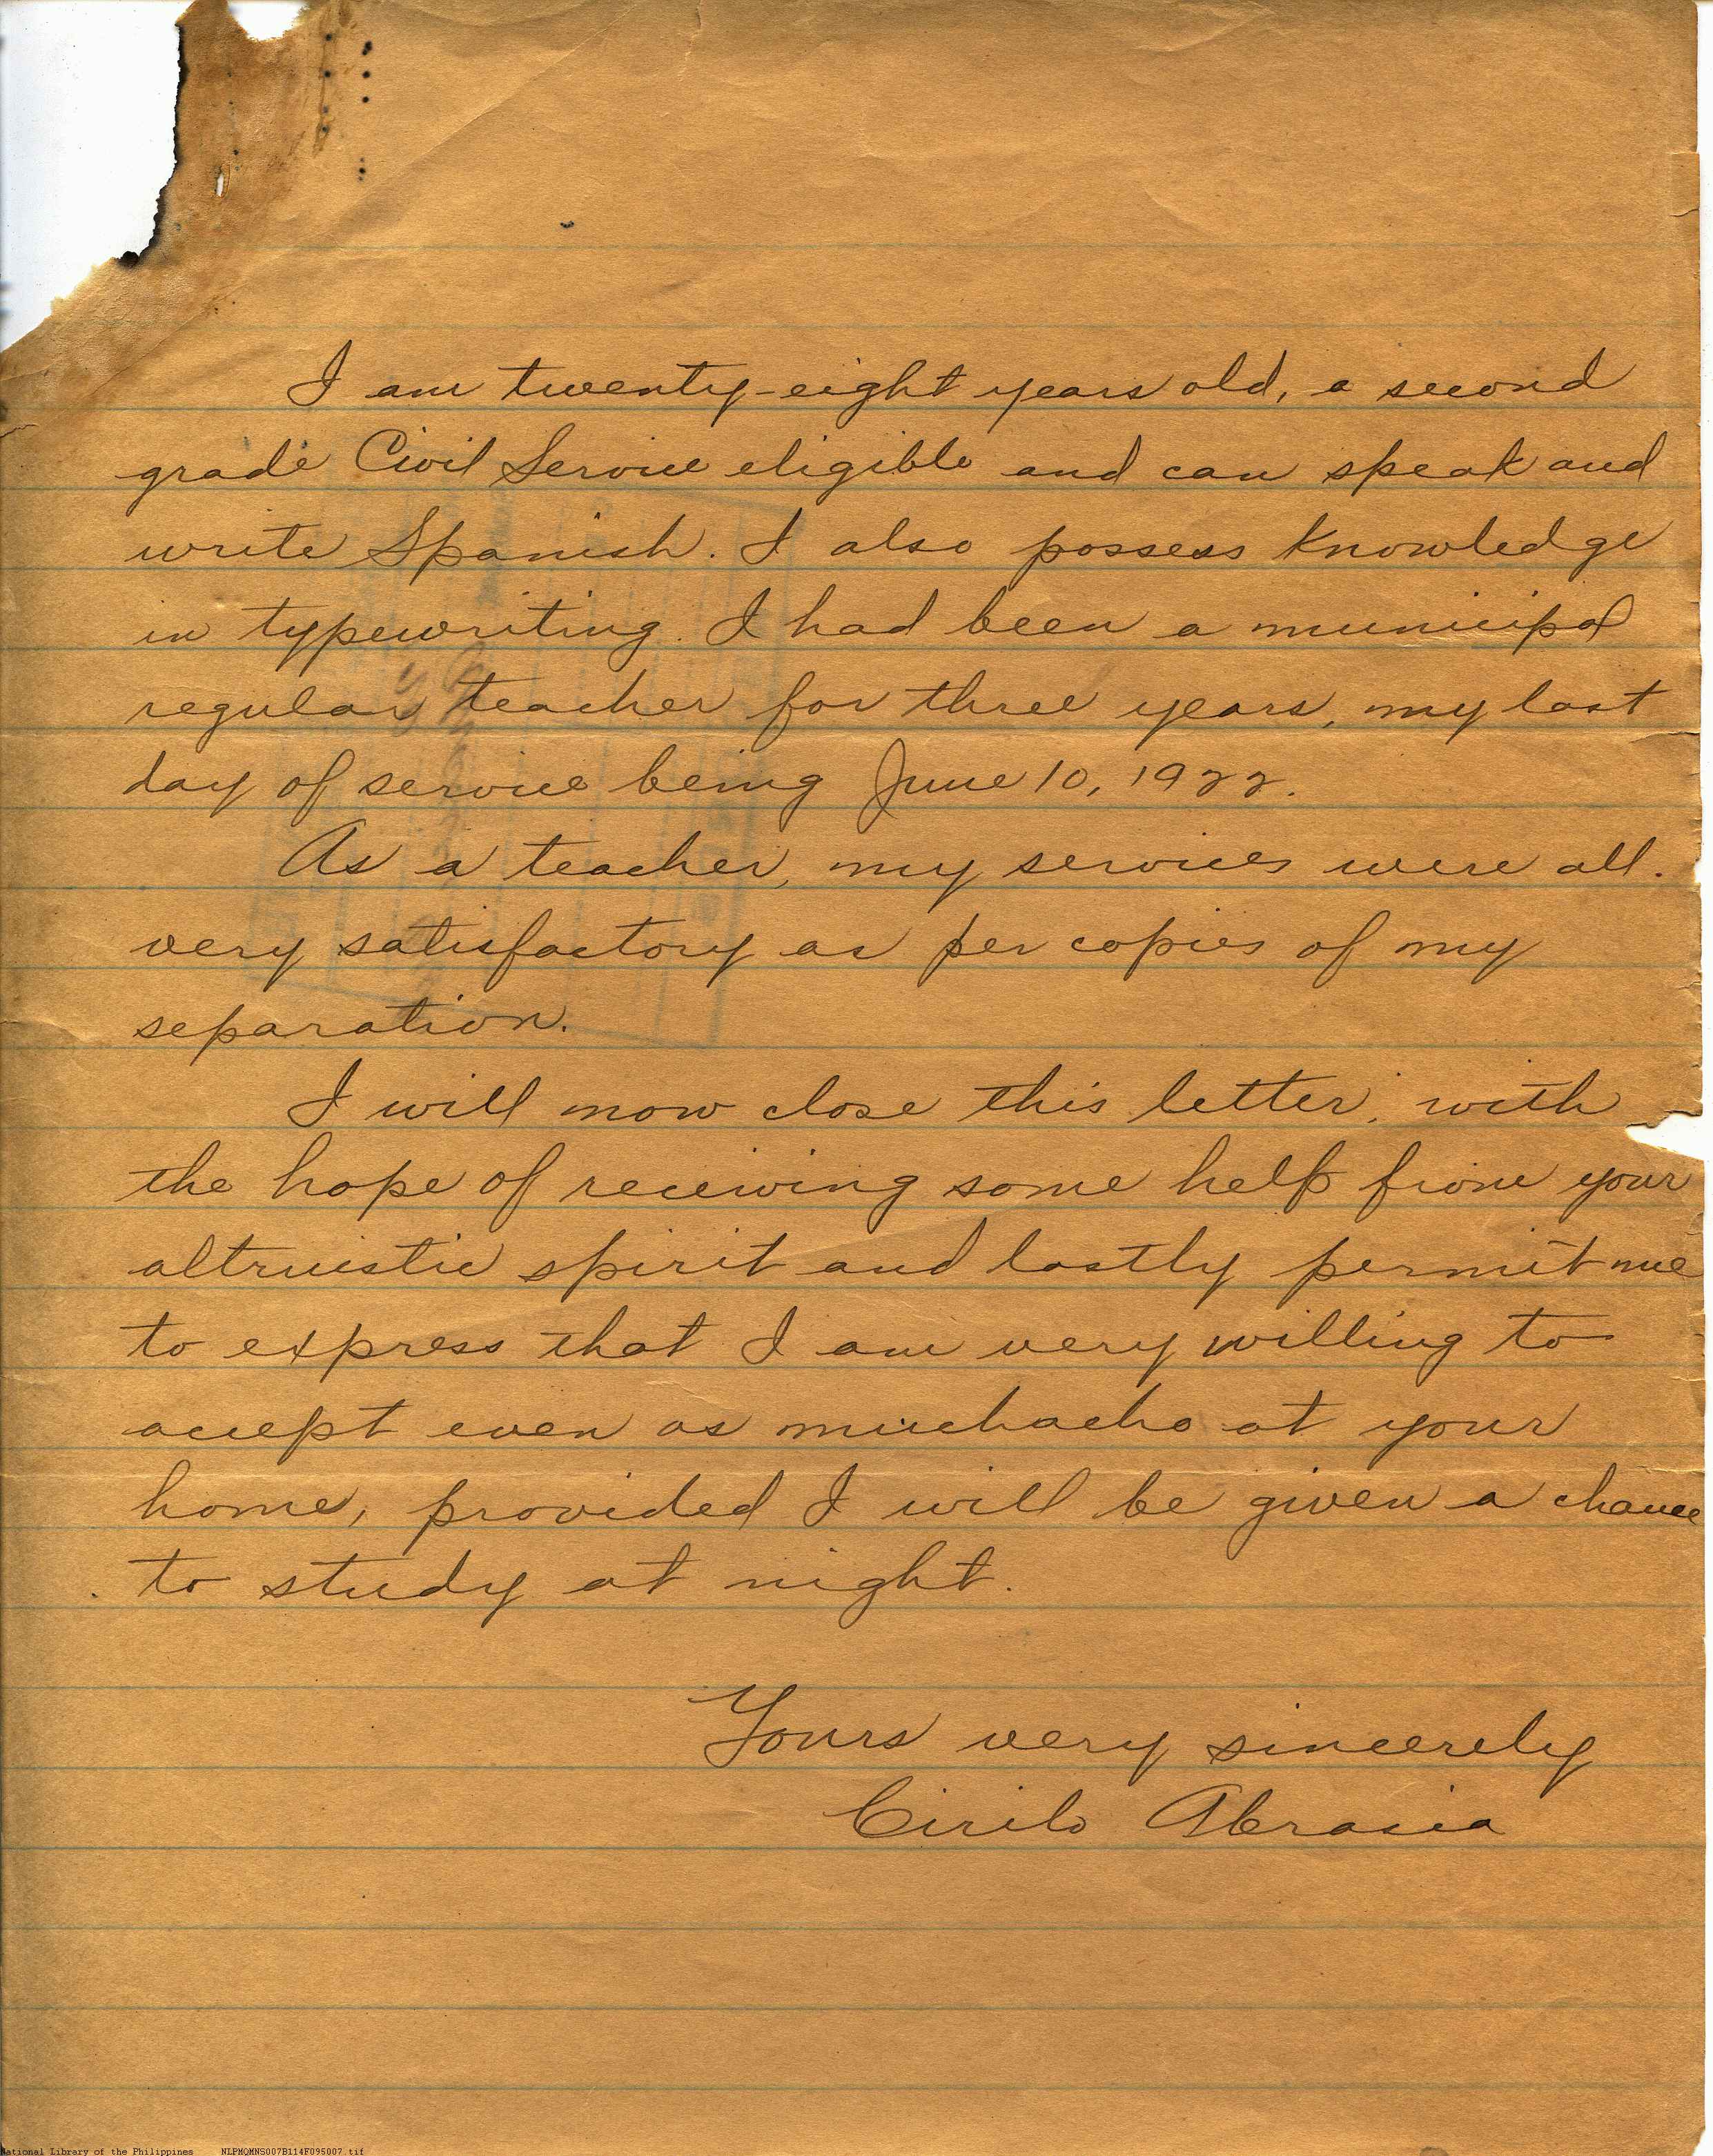 I am twenty-eight years old, a second
grade Civil Service eligible and can speak and
write Spanish. I also possess knowledge
in typewriting. I had been a municipal
regular teacher for three years, my last
day of service being June 10, 1922.
As a teacher, my services were all.
very satisfactory as per copies of my
separation.
I will now close this letter, with
the hope of receiving some help from your
altruistic spirit and lastly permit me
to express that I am very willing to
accept even as muchacho at your
home, provided I will be given a chance
to study at night.
Yours very sincerely
Cirilo Abrasia
National Library of the Philippines NLPMQMNS007B114F095007.tif